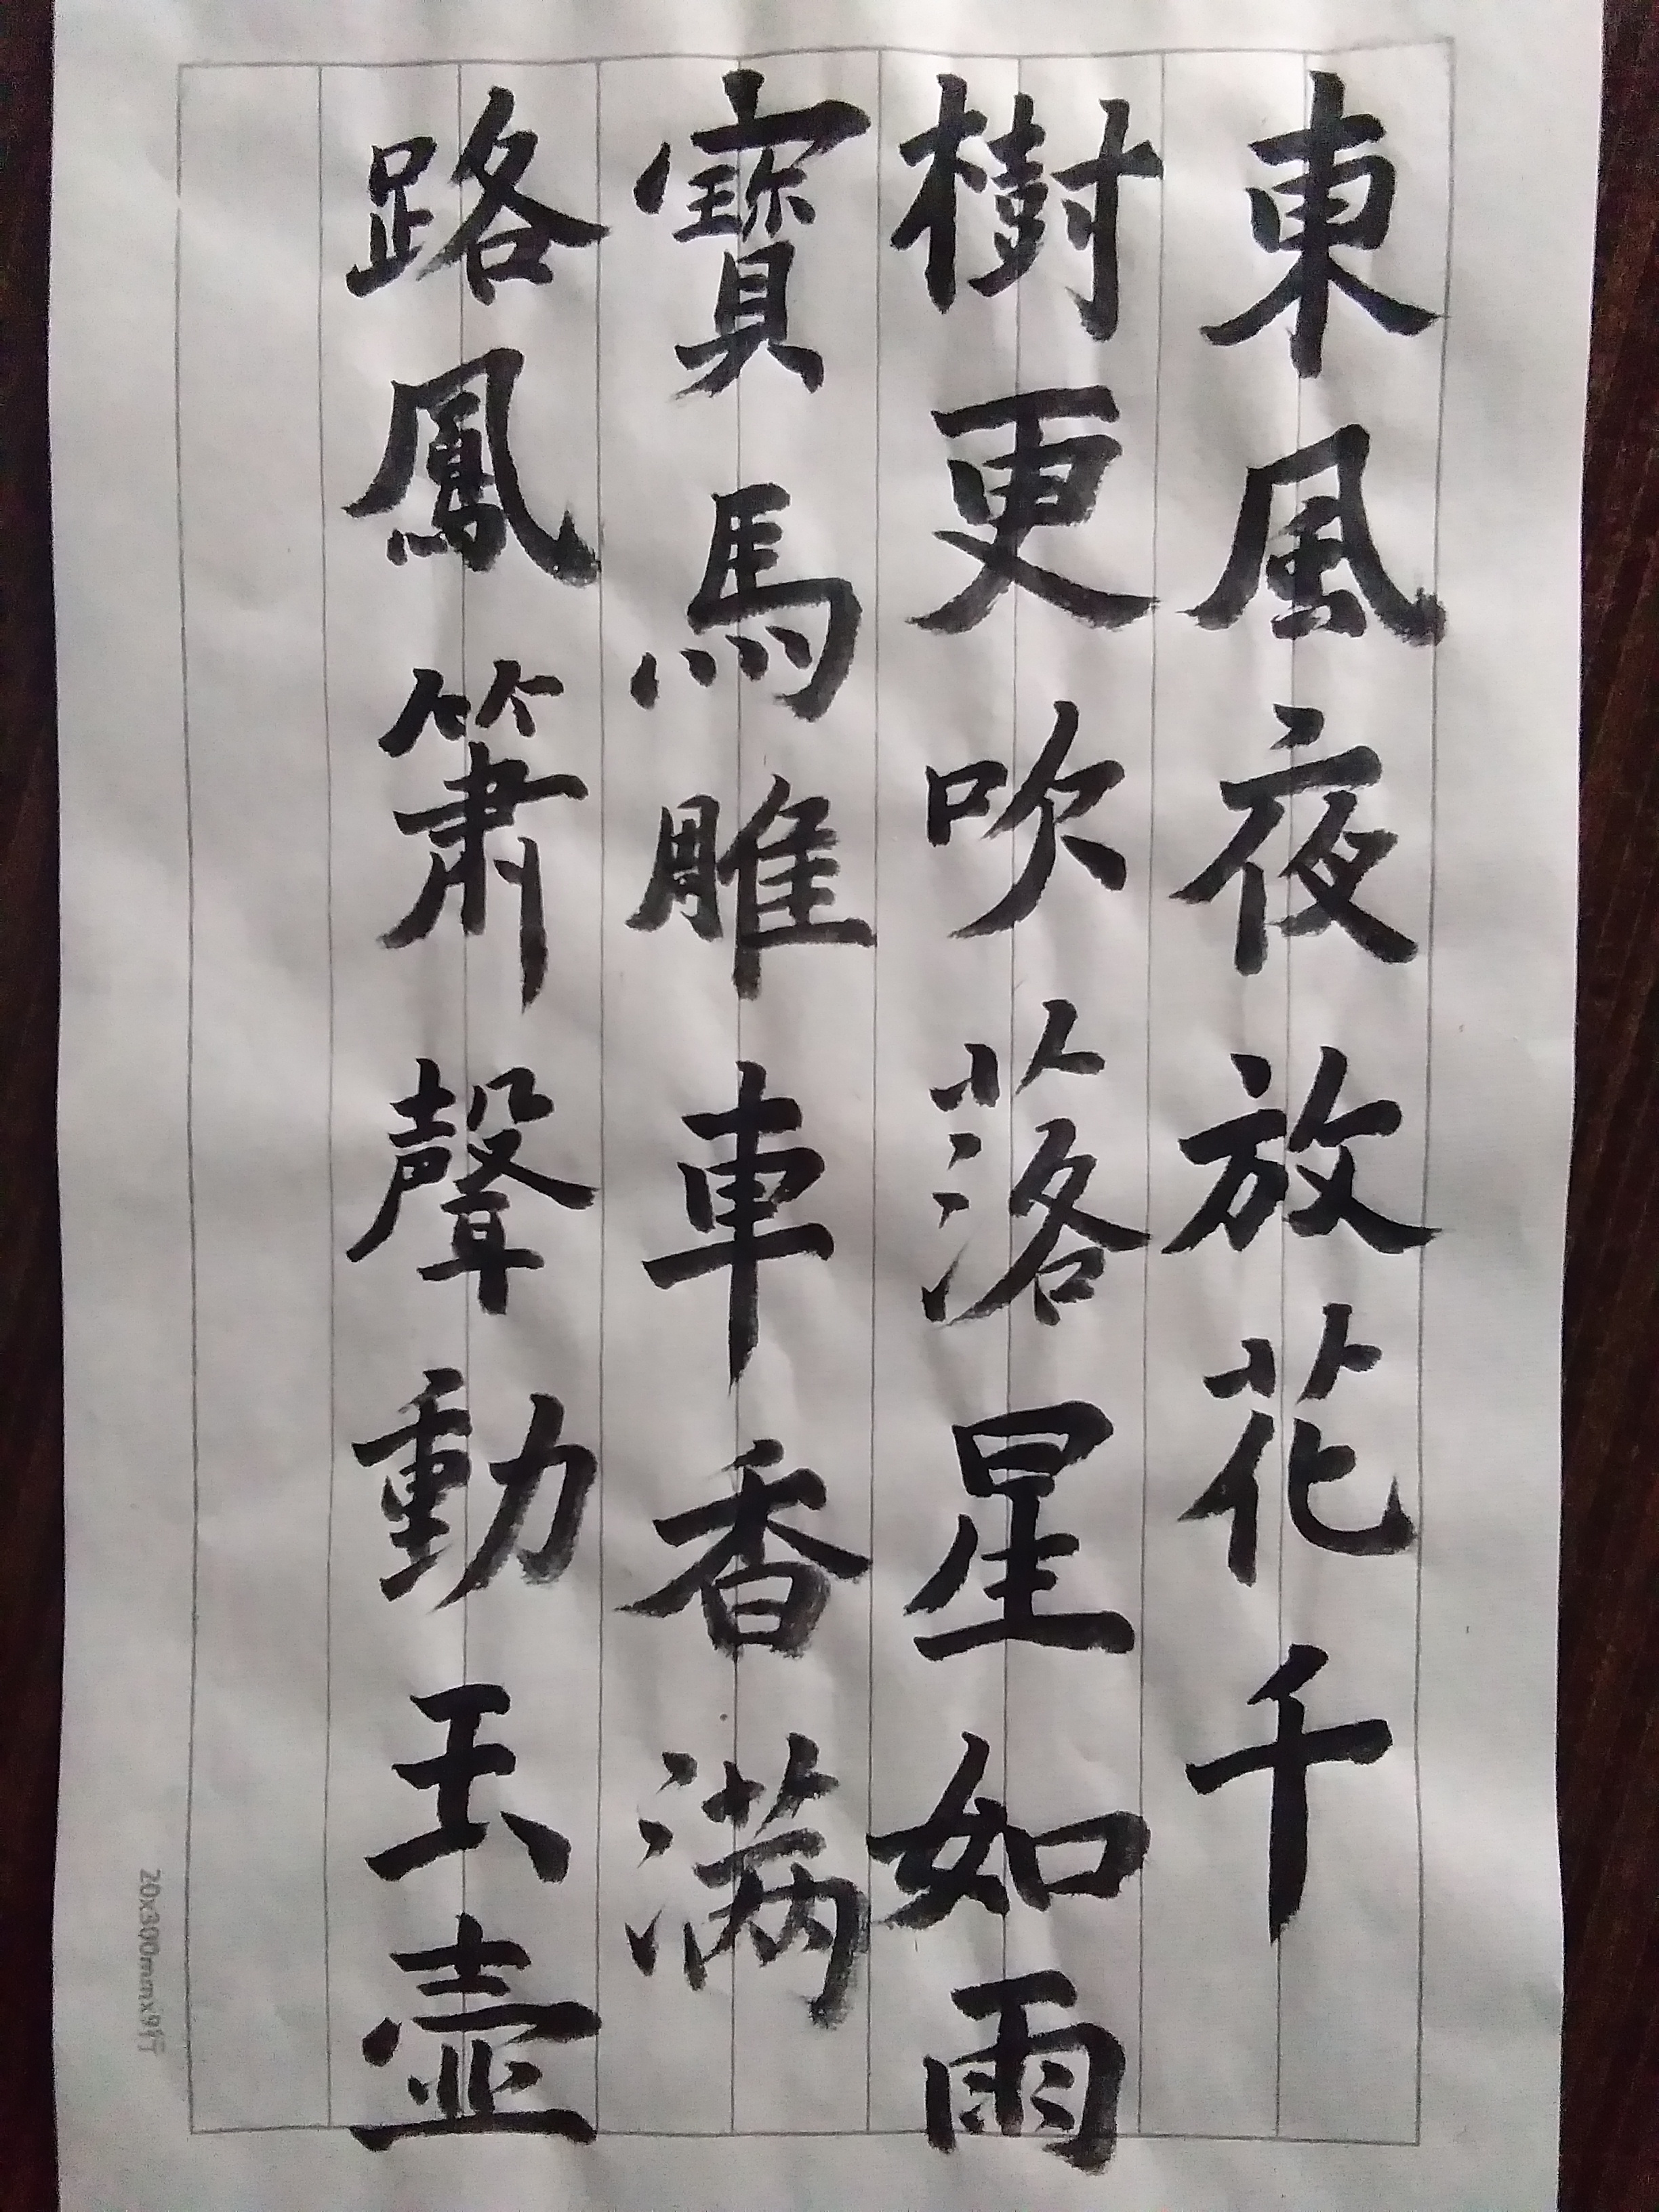 東風夜放花千
樹更吹落星如雨
寶馬雕車香滿
路鳳簫聲動玉壺
20x300mmx9行